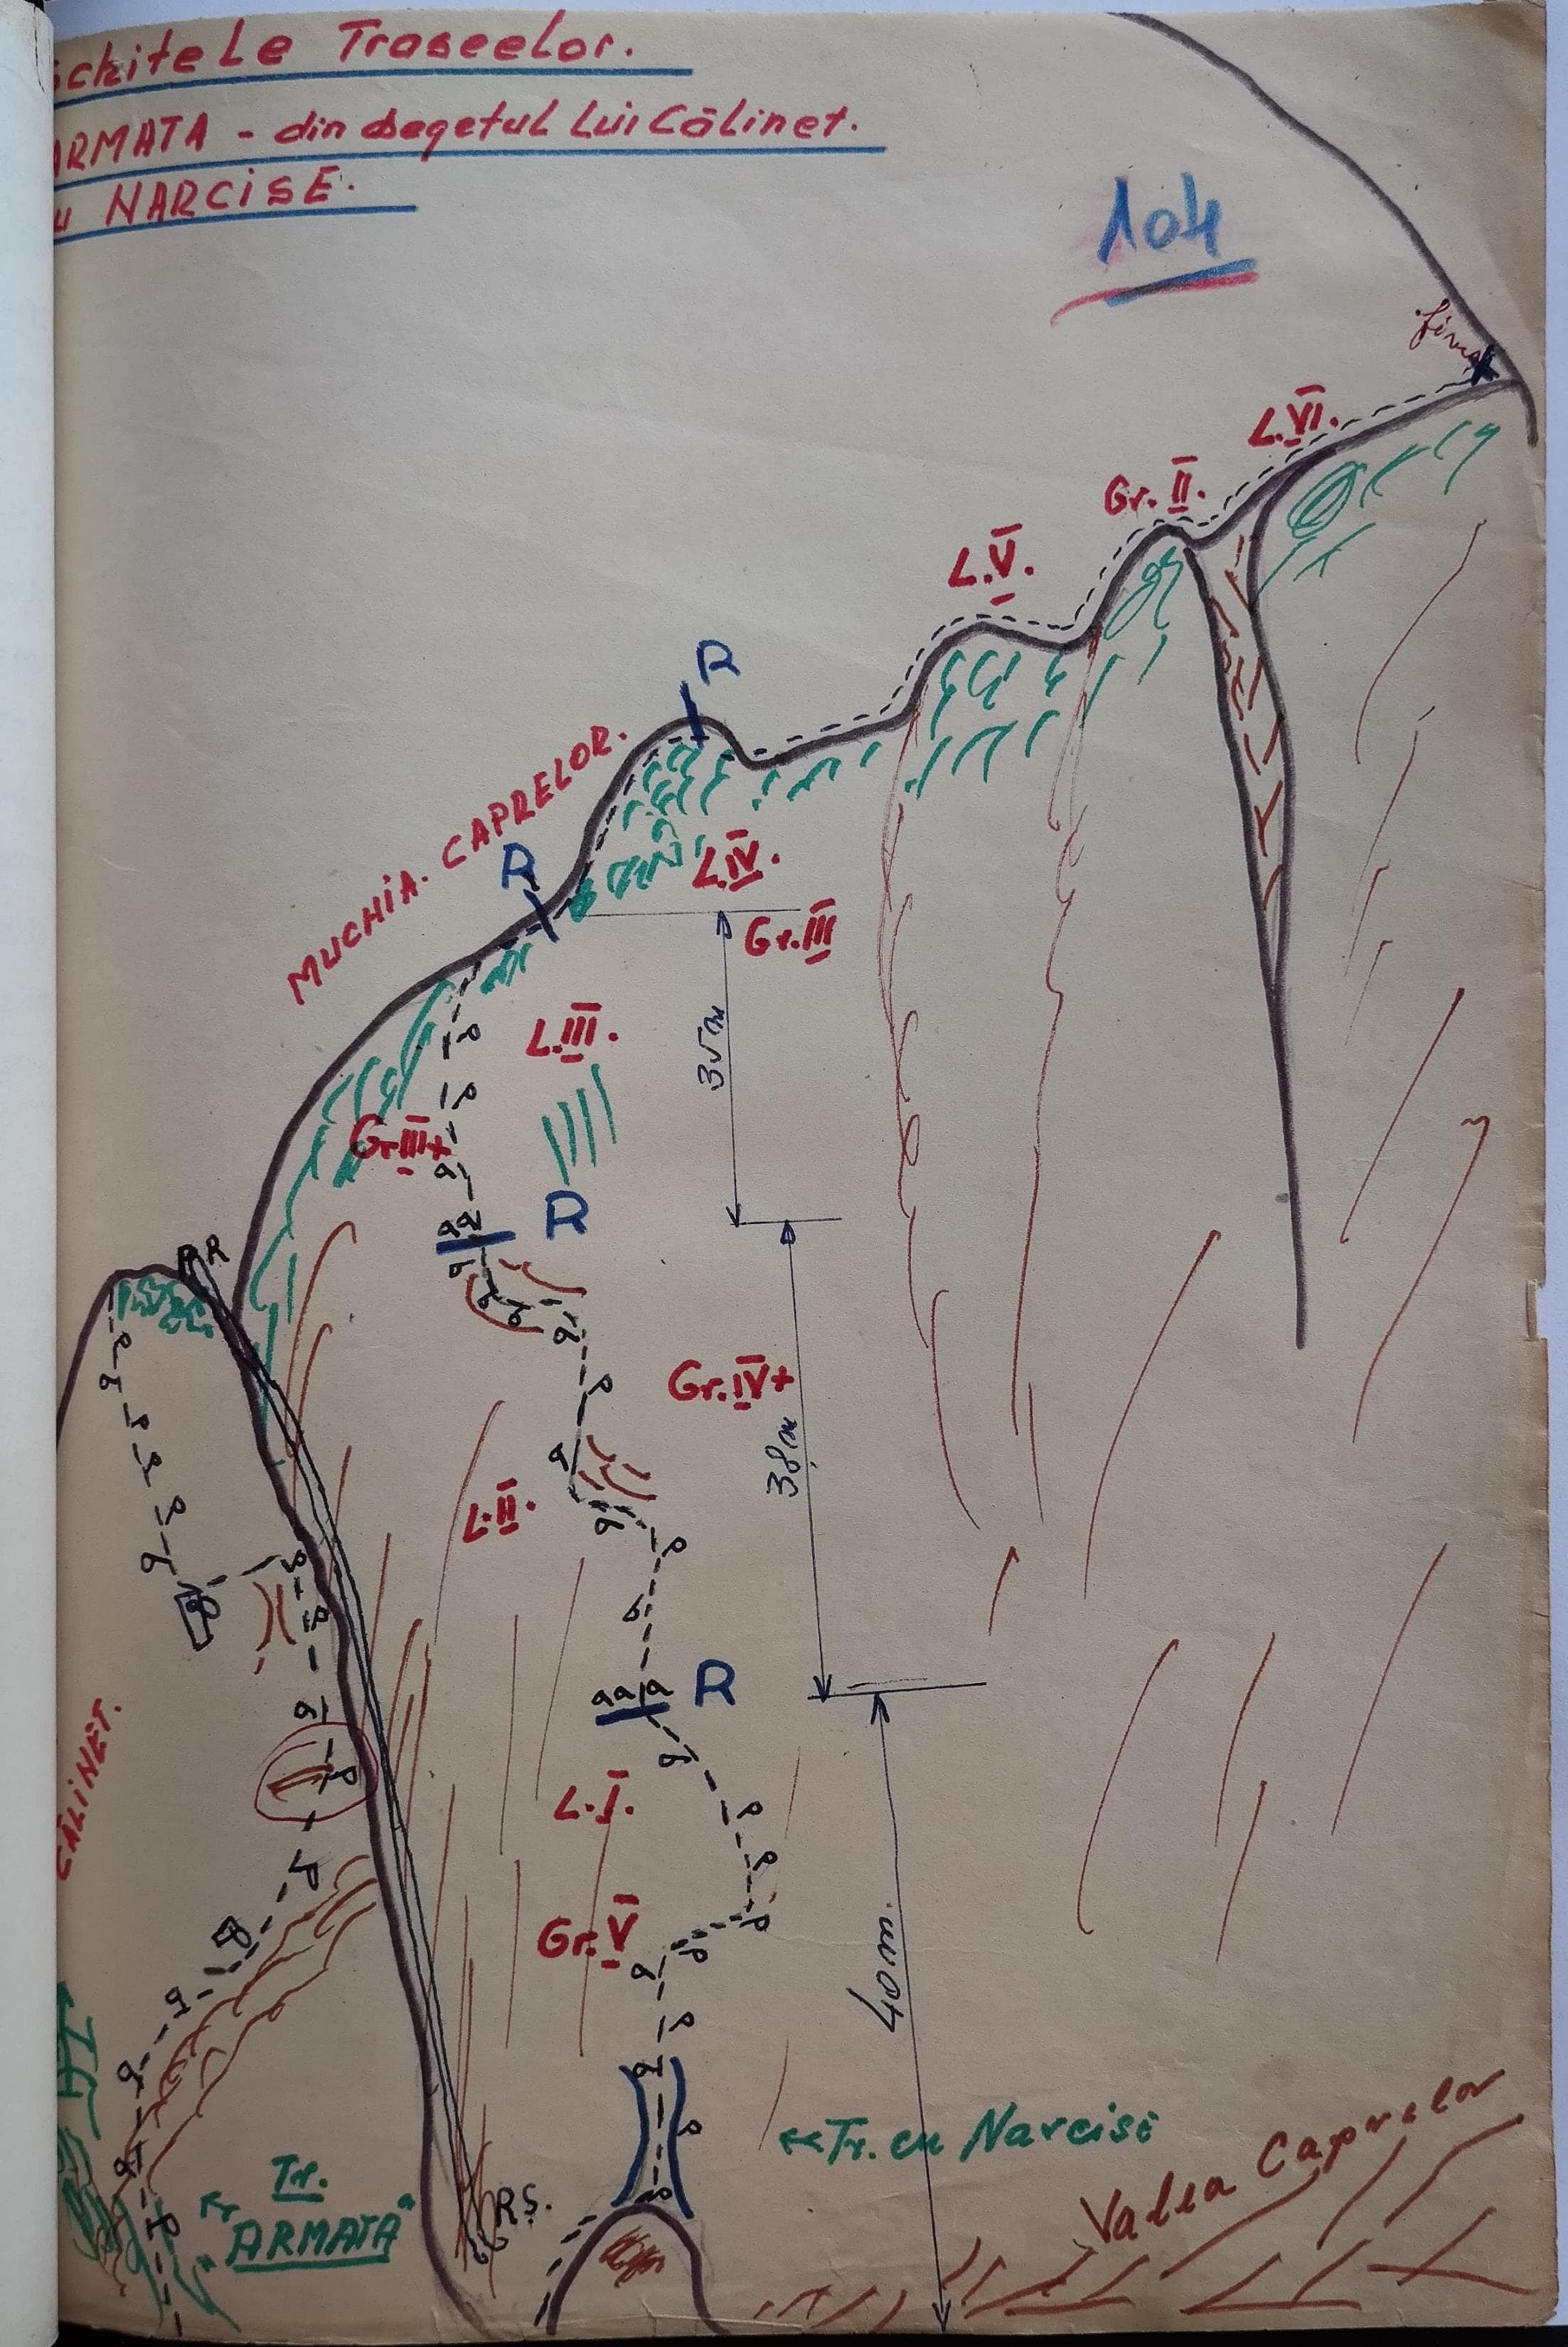 schitele Traseelor.
ARMATA - din degetul Lui Călinet.
NARCISE.
104
final
L.VI.
Gr. II.
L.V.
R
MUCHIA. CAPRELOR.
R
L.IV.
Gr.III
35m
L.III.
Gr.III+
R
R
Gr.IV+
38m
L.II.
R
CĂLINET.
L.I.
Gr.V
40m.
Tr. cu Narcise
Valea Caprelor
Tr.
"ARMATA"
R.S.